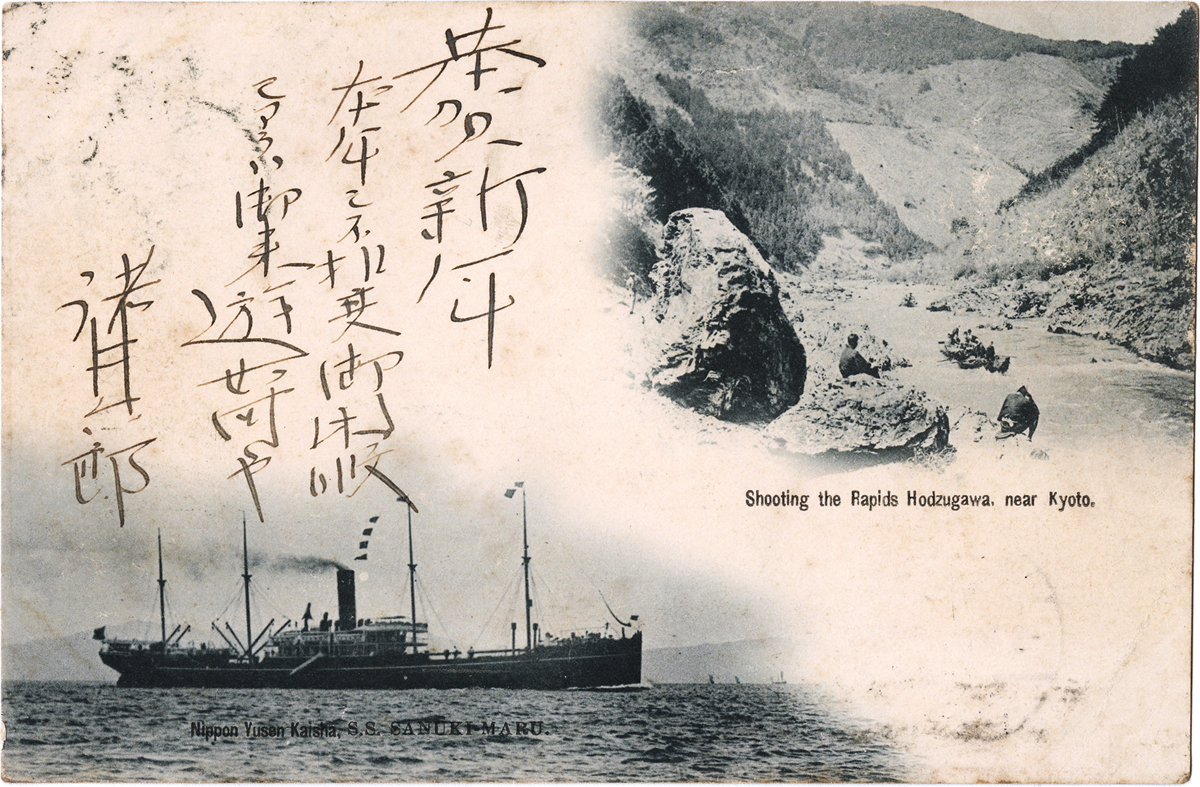 恭賀新年
本年 不相 御休暇
御来遊如何や
諸井 郎
Shooting the Rapids Hodzugawa, near Kyoto.
Nippon Yusen Kaisha, S.S. SANUKI-MARU.